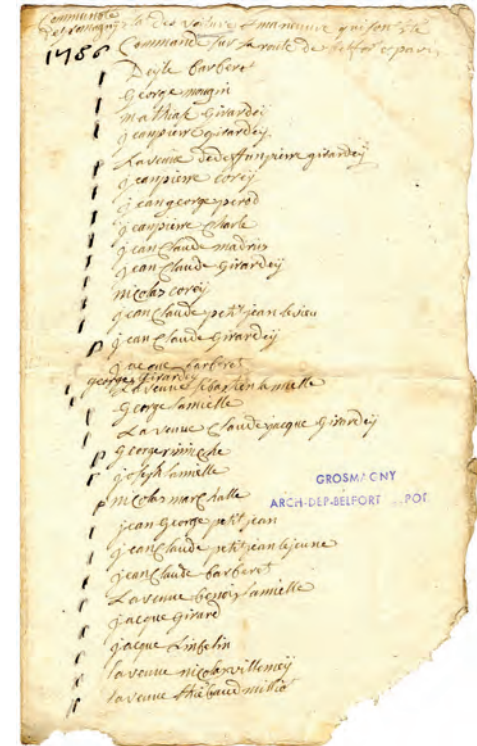 Communote
de gromagny la des voiture & maneuvre qui son ete
1786 Command sur la route de belfor a paris
Deile barberet
george mougin
mathias girardeÿ
jeanpierre girardeÿ
La veuve de deffun pierre girardeÿ
jeanpierre coreÿ
jean george perod
jeanpierre Charle
jean Claude madrus
jean Claude girardeÿ
nicolas coreÿ
jean Claude petitjean le vieu
jean Claude girardeÿ
jacque barberet
george girardeÿ
La veuve sebastien lamielle
George lamielle
La veuve Claude jacque girardeÿ
George
joseph lamielle
nicolas marchalle
jean George petitjean
jean Claude petitjean le jeune
jean Claude barberet
La veuve benois lamielle
jacque girard
jacque
la veuve nicolas villemeÿ
la veuve thiebaud milliot
GROSMAGNY
ARCH-DEP-BELFORT POT